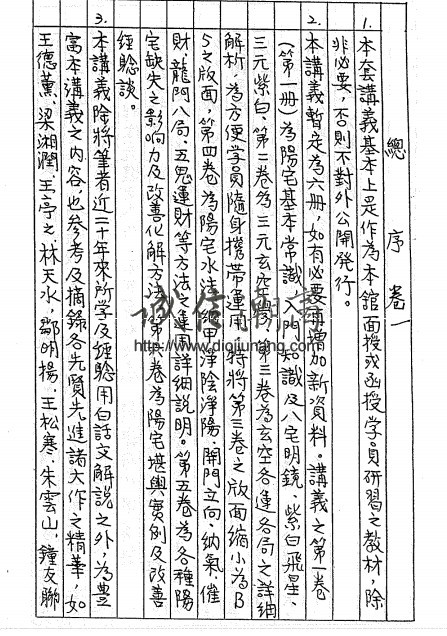 總序卷一
1. 本套講義基本上是作為本館面授或函授学員研習之教材，除
非必要，否則不對外公開発行。
2. 本講義暫定為六冊，如有必要再增加新資料。講義之第一卷
(第一冊)為陽宅基本常識入門知識及八宅明鏡、紫白飛星、
三元紫白、第二卷為三元玄空易、第三卷為玄空各運各局之詳細
解析，為方便学員隨身攜帶運用，特將第三卷之版面縮小為B
5之版面，第四卷為陽宅水法、納甲淨陰淨陽、開門立向、納氣、催
財、龍門八局、五鬼運財等方法之運用詳細説明。第五卷為各種陽
宅缺失之影响力及改善化解方法，第六卷為陽宅堪輿實例及改善
經驗談。
3. 本講義除將筆者近二十年來所学及經驗用白話文解説之外，為豊
富本講義之內容，也参考及摘錄各先賢先進諸大作之精華，如
王德薰、梁湘潤、王亭之、林天水，鄒明揚、王松寒、朱雲山，鐘友聯
www.digijunzhang.com